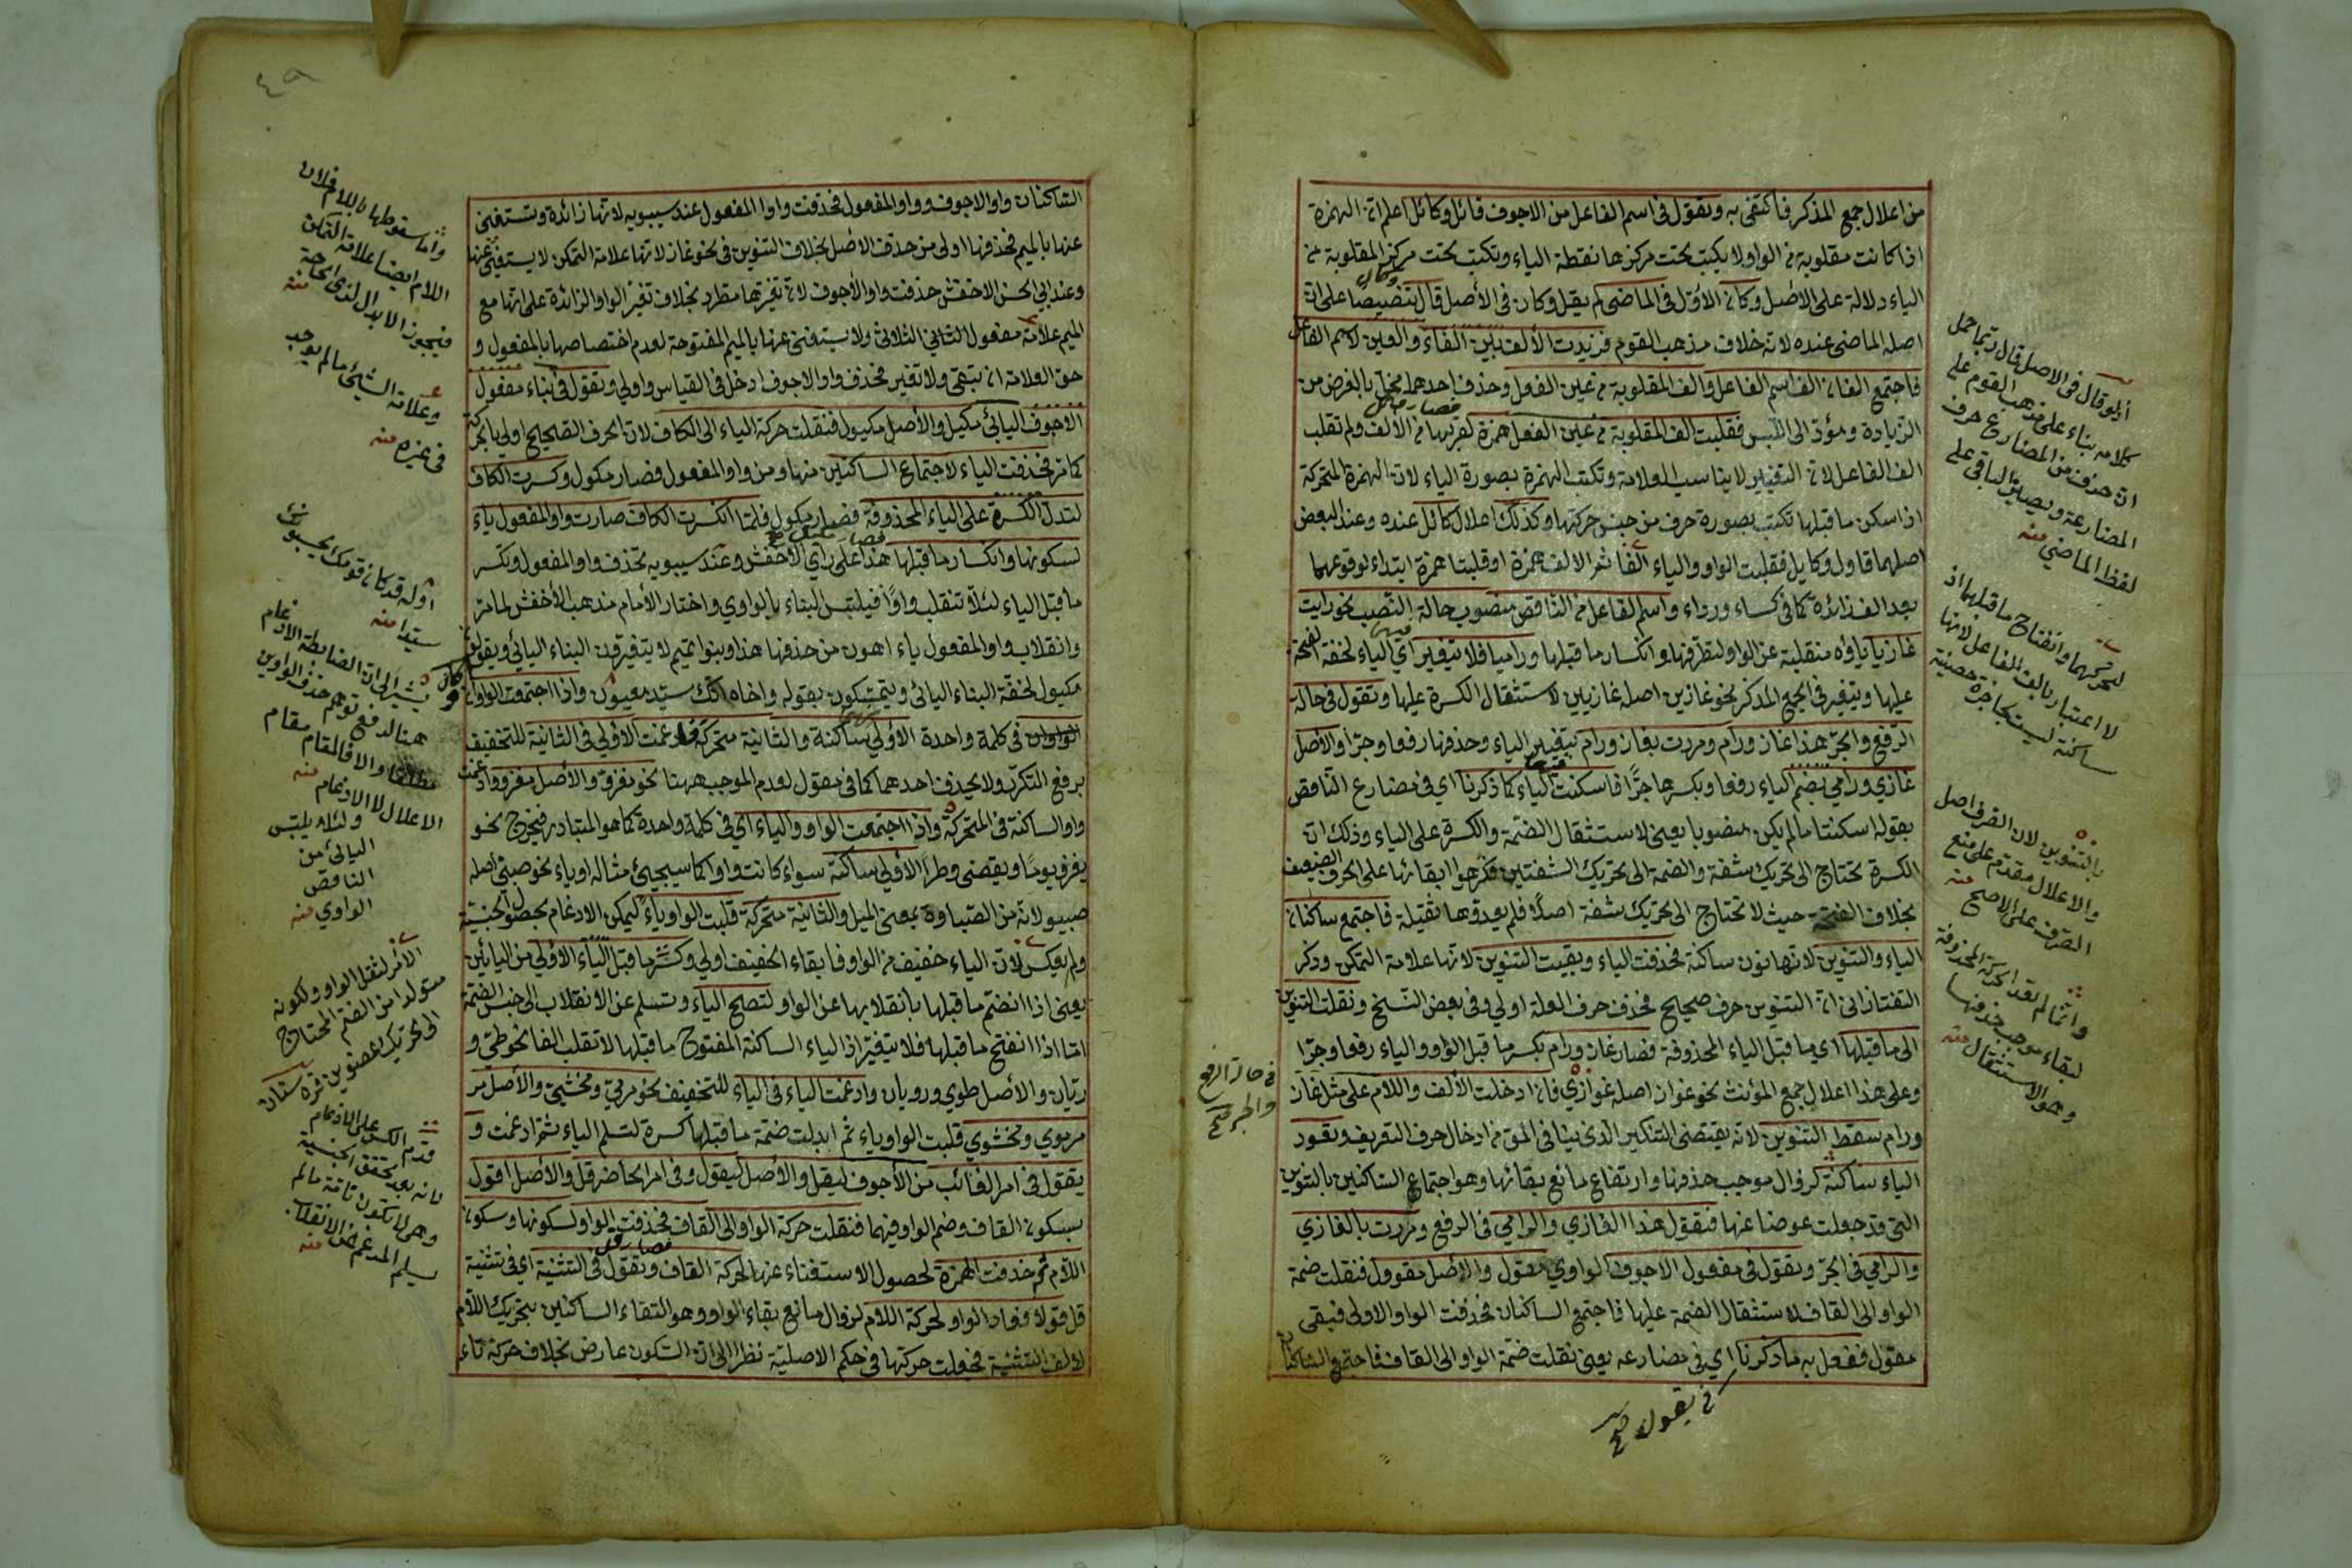 من اعلال جمع المذكر فاكتفى به وتقول فى اسم الفاعل من الاجوف قائل وكائل اعلم انّ الهمزة
اذا كانت مقلوبة من الواو لا يكتب تحت مركزها نقطة الياء وتكتب تحت مركز المقلوبة من
الياء دلالة على الأصل وكان الأوّل فى الماضى لم يقل وكان فى الأصل قال تنصيصا على انّ
اصله الماضى عنده لانه خلاف مذهب القوم فزيدت الألف بين الفاء والعين لاسم الفاعل
فاجتمع الفان الف اسم الفاعل والف المقلوبة من عين الفعل وحذف احدهما مخلّ بالغرض من
الزيادة ومؤدّ الى اللبس فقلبت الف المقلوبة من عين الفعل همزة لقربها من الألف ولم تقلب
الف الفاعل لان التغيير لا يناسب العلامة وتكتب الهمزة بصورة الياء لان الهمزة المتحركة
اذا سكن ما قبلها تكتب بصورة حرف من جنس حركتها وكذلك اعلال كائل عنده وعند البعض
اصلهما قاول وكايل فقلبت الواو والياء الفا ثم الالف همزة او قلبتا همزة ابتداء لوقوعهما
بعد الف زائدة كما فى كساء ورداء واسم الفاعل من الناقص منصوب حالة النصب نحو رايت
غازيا ياؤه منقلبة عن الواو لتطرفها وانكسار ما قبلها وراميا فلا يتغير اى الياء لخفة الفتحة
عليها ويتغير فى الجمع المذكر نحو غازين اصله غازيين لاستثقال الكسرة عليها وتقول فى حالة
الرفع والجرّ هذا غاز ورام ومررت بغاز ورام بتغيير الياء وحذفها رفعا وجرّا والأصل
غازي ورامي بضم الياء رفعا وبكسرها جرًّا فاسكنت الياء كما ذكرنا اى فى مضارع الناقص
بقوله اسكنتا ما لم يكن منصوبا يعنى لاستثقال الضمّة والكسرة على الياء وذلك انّ
الكسرة تحتاج الى تحريك شفة والضمة الى تحريك الشفتين فكرهوا ابقائها على الحرف الضعيف
بخلاف الفتحة حيث لا تحتاج الى تحريك شفة اصلًا فلم يعدوها ثقيلة فاجتمع ساكنان
الياء والتنوين لانها نون ساكنة فحذفت الياء وبقيت التنوين لانها علامة التمكن وذكر
التفتازانى انّ التنوين حرف صحيح فحذف حرف العلة اولى وفى بعض النسخ ونقلت التنوين
الى ما قبلها اى ما قبل الياء المحذوفة فصار غاز ورام بكسر ما قبل الواو والياء رفعا وجرّا
وعلى هذا اعلال جمع المؤنث نحو غواز اصله غوازي فان ادخلت الألف واللام على مثل غاز
ورام سقط التنوين لانه يقتضى التنكير الذى ينافى ادخال حرف التعريف وتعود
الياء ساكنة لزوال موجب حذفها وارتفاع مانع بقائها وهو اجتماع الساكنين بالتنوين
التى قد جعلت عوضا عنها فتقول هذا الغازي والرامي فى الرفع ومررت بالغازي
والرامي فى الجرّ وتقول فى مفعول الاجوف الواوي مقول والأصل مقوول فنقلت ضمة
الواو الى القاف لاستثقال الضمة عليها فاجتمع الساكنان فحذفت الواو الاولى فبقى
مقول ففعل به ما ذكرنا اى فى مضارعه يعنى نقلت ضمّة الواو الى القاف فاجتمع الساكنان
فى يقول صح
فى حالة الرفع
والجر صح
كلامه بناء على مذهب القوم على
ان حذف من المضارع حرف
المضارعة ويصير الباقى على
لفظ الماضى منه
لتحركهما وانفتاح ما قبلهما اذ
لا اعتبار بالف الفاعل لانها
ساكنة ليست بحاجزة حصينة
بالتنوين لان الصرف اصل
والاعلال مقدم على منع
الصرف على الاصح منه
وانما لم يعد الحركة المحذوفة
لبقاء موجب حذفها
وهو الاستثقال منه
الساكنان واو الاجوف وواو المفعول فحذفت واو المفعول عند سيبويه لانها زائدة ويستغنى
عنها بالميم فحذفها اولى من حذف الأصل بخلاف التنوين فى نحو غاز لانها علامة التمكن لا يستغنى عنها
وعند ابى الحسن الاخفش حذفت واو الأجوف لانّ تغيّرها مطرد بخلاف تغير الواو الزائدة على انها مع
الميم علامة مفعول الثلاثى ولا يستغنى عنها بالميم المفتوحة لعدم اختصاصها بالمفعول و
حق العلامة ان تبقى ولا تغير فحذف واو الاجوف ادخل فى القياس واولى وتقول فى بناء مفعول
الاجوف اليائى مكيل والأصل مكيول فنقلت حركة الياء الى الكاف لان الحرف الصحيح اولى بالحركة
كما مرّ فحذفت الياء لاجتماع الساكنين منها ومن واو المفعول فصار مكول وكسرت الكاف
لتدل الكسرة على الياء المحذوفة فصار مكول فلما انكسرت الكاف صارت واو المفعول ياء
لسكونها وانكسار ما قبلها هذا على رأى الأخفش وعند سيبويه تحذف واو المفعول وتكسر
ما قبل الياء لئلا تنقلب واوًا فيلتبس البناء بالواوي واختار الأمام مذهب الأخفش لما مرّ
وانقلاب واو المفعول ياء اهون من حذفها هذا وبنوا تميم لا يتغيرون البناء اليائى ويقولون
مكيول لخفة البناء اليائى ويتمسكون بقوله واخاه انك سيّد معيون واذا اجتمعت الواوان
فى كلمة واحدة الاولى ساكنة والثانية متحركة فادغمت الاولى فى الثانية للتخفيف
برفع التكرر ولا يحذف احدهما كما فى مقول لعدم الموجب ههنا نحو مغزوّ والأصل مغزوو ادغمت
واو الساكنة فى المتحركة واذا اجتمعت الواو والياء اى فى كلمة واحدة كما هو المتبادر فيخرج نحو
يغزو يوما ويقضى وطرًا الأولى ساكنة سواء كانت واوا كما سيجيئ مثاله او ياء نحو صبىّ اصله
صبيو لانه من الصباوة بمعنى الميل والثانية متحركة قلبت الواو ياء ليمكن الادغام بحصول الجنسية
ولم يعكس لان الياء خفيف من الواو فابقاء الخفيف اولى وكسّر ما قبل الياء الأولى من اليائين
يعنى اذا انضم ما قبلها بانقلابها عن الواو لتصلح الياء وتسلم عن الانقلاب الى جنس الضمة
امّا اذا انفتح ما قبلها فلا يتغيّر اذ الياء الساكنة المفتوح ما قبلها لا تنقلب الفا نحو طىّ و
ريّان والأصل طوي ورويان وادغمت الياء فى الياء للتخفيف نحو مرمىّ ومخشىّ والأصل مر
مرموي ومخشوي قلبت الواو ياء ثم ابدلت ضمّة ما قبلها كسرة لتسلم الياء ثم ادغمت و
يقول فى امر الغائب من الأجوف ليقل والأصل ليقول وفى امر الحاضر قل والأصل اقول
بسكون القاف وضم الواو فيهما فنقلت حركة الواو الى القاف فحذفت الواو لسكونها وسكون
اللام ثم حذفت الهمزة لحصول الاستغناء عنها لحركة القاف وتقول فى التثنية اى فى تثنية
قل قولا فعاد الواو لحركة اللام لزوال مانع بقاء الواو وهو التقاء الساكنين بتحريك اللام
لألف التثنية فجعلت حركتها فى حكم الاصليّة نظرا الى ان السكون عارض بخلاف حركة تاء
وانما سقوطها باللام فلان
اللام ايضا علامة التمكن
فيجوز الابدال لدى الحاجة منه
وعلامة الشيئ ما لم يوجد
فى غيره منه
اوله قد كان قومك يحسبونك
سيدا منه
يشير الى ان الضابطة الادغام
هنا لدفع توهم حذف الواوين
مطلقا والا فالمقام مقام
الاعلال لا الادغام منه
ولئلا يلتبس
اليائى من
الناقص
الواوي منه
الاثر لثقل الواو ولكونه
متولدا من الضم المحتاج
الى تحريك عضوين
قدم الكسر على الادغام
لانه بعد تحقق الجنسية
وهى لا تكون تامة ما لم
يسلم المدغم عن الانقلاب منه
٤٩